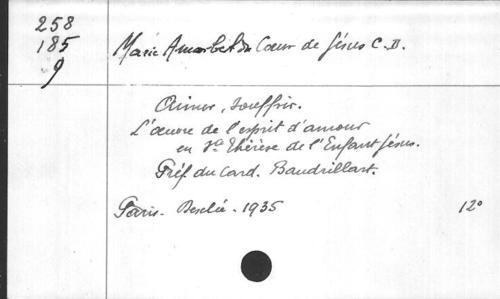 258
185
9
Marie Amabel du Cœur de Jésus C.D.
Aimer, souffrir.
L'œuvre de l'esprit d'amour
en Ste Thérèse de l'Enfant Jésus.
Préf. du Card. Baudrillart.
Paris - Desclée - 1935
12°